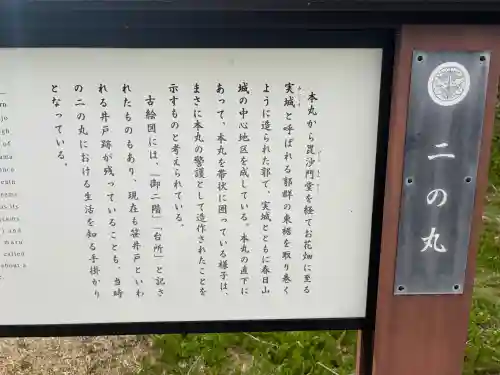 二の丸
本丸から毘沙門堂を経てお花畑に至る
実城と呼ばれる郭群の東裾を取り巻く
ように造られた郭で、実城とともに春日山
城の中心地区を成している。本丸の直下に
あって、本丸を帯状に囲っている様子は、
まさに本丸の警護として造作されたことを
示すものと考えられている。
古絵図には、「御二階」「台所」と記さ
れたものもあり、現在も笹井戸といわ
れる井戸跡が残っていることも、当時
の二の丸における生活を知る手掛かり
となっている。